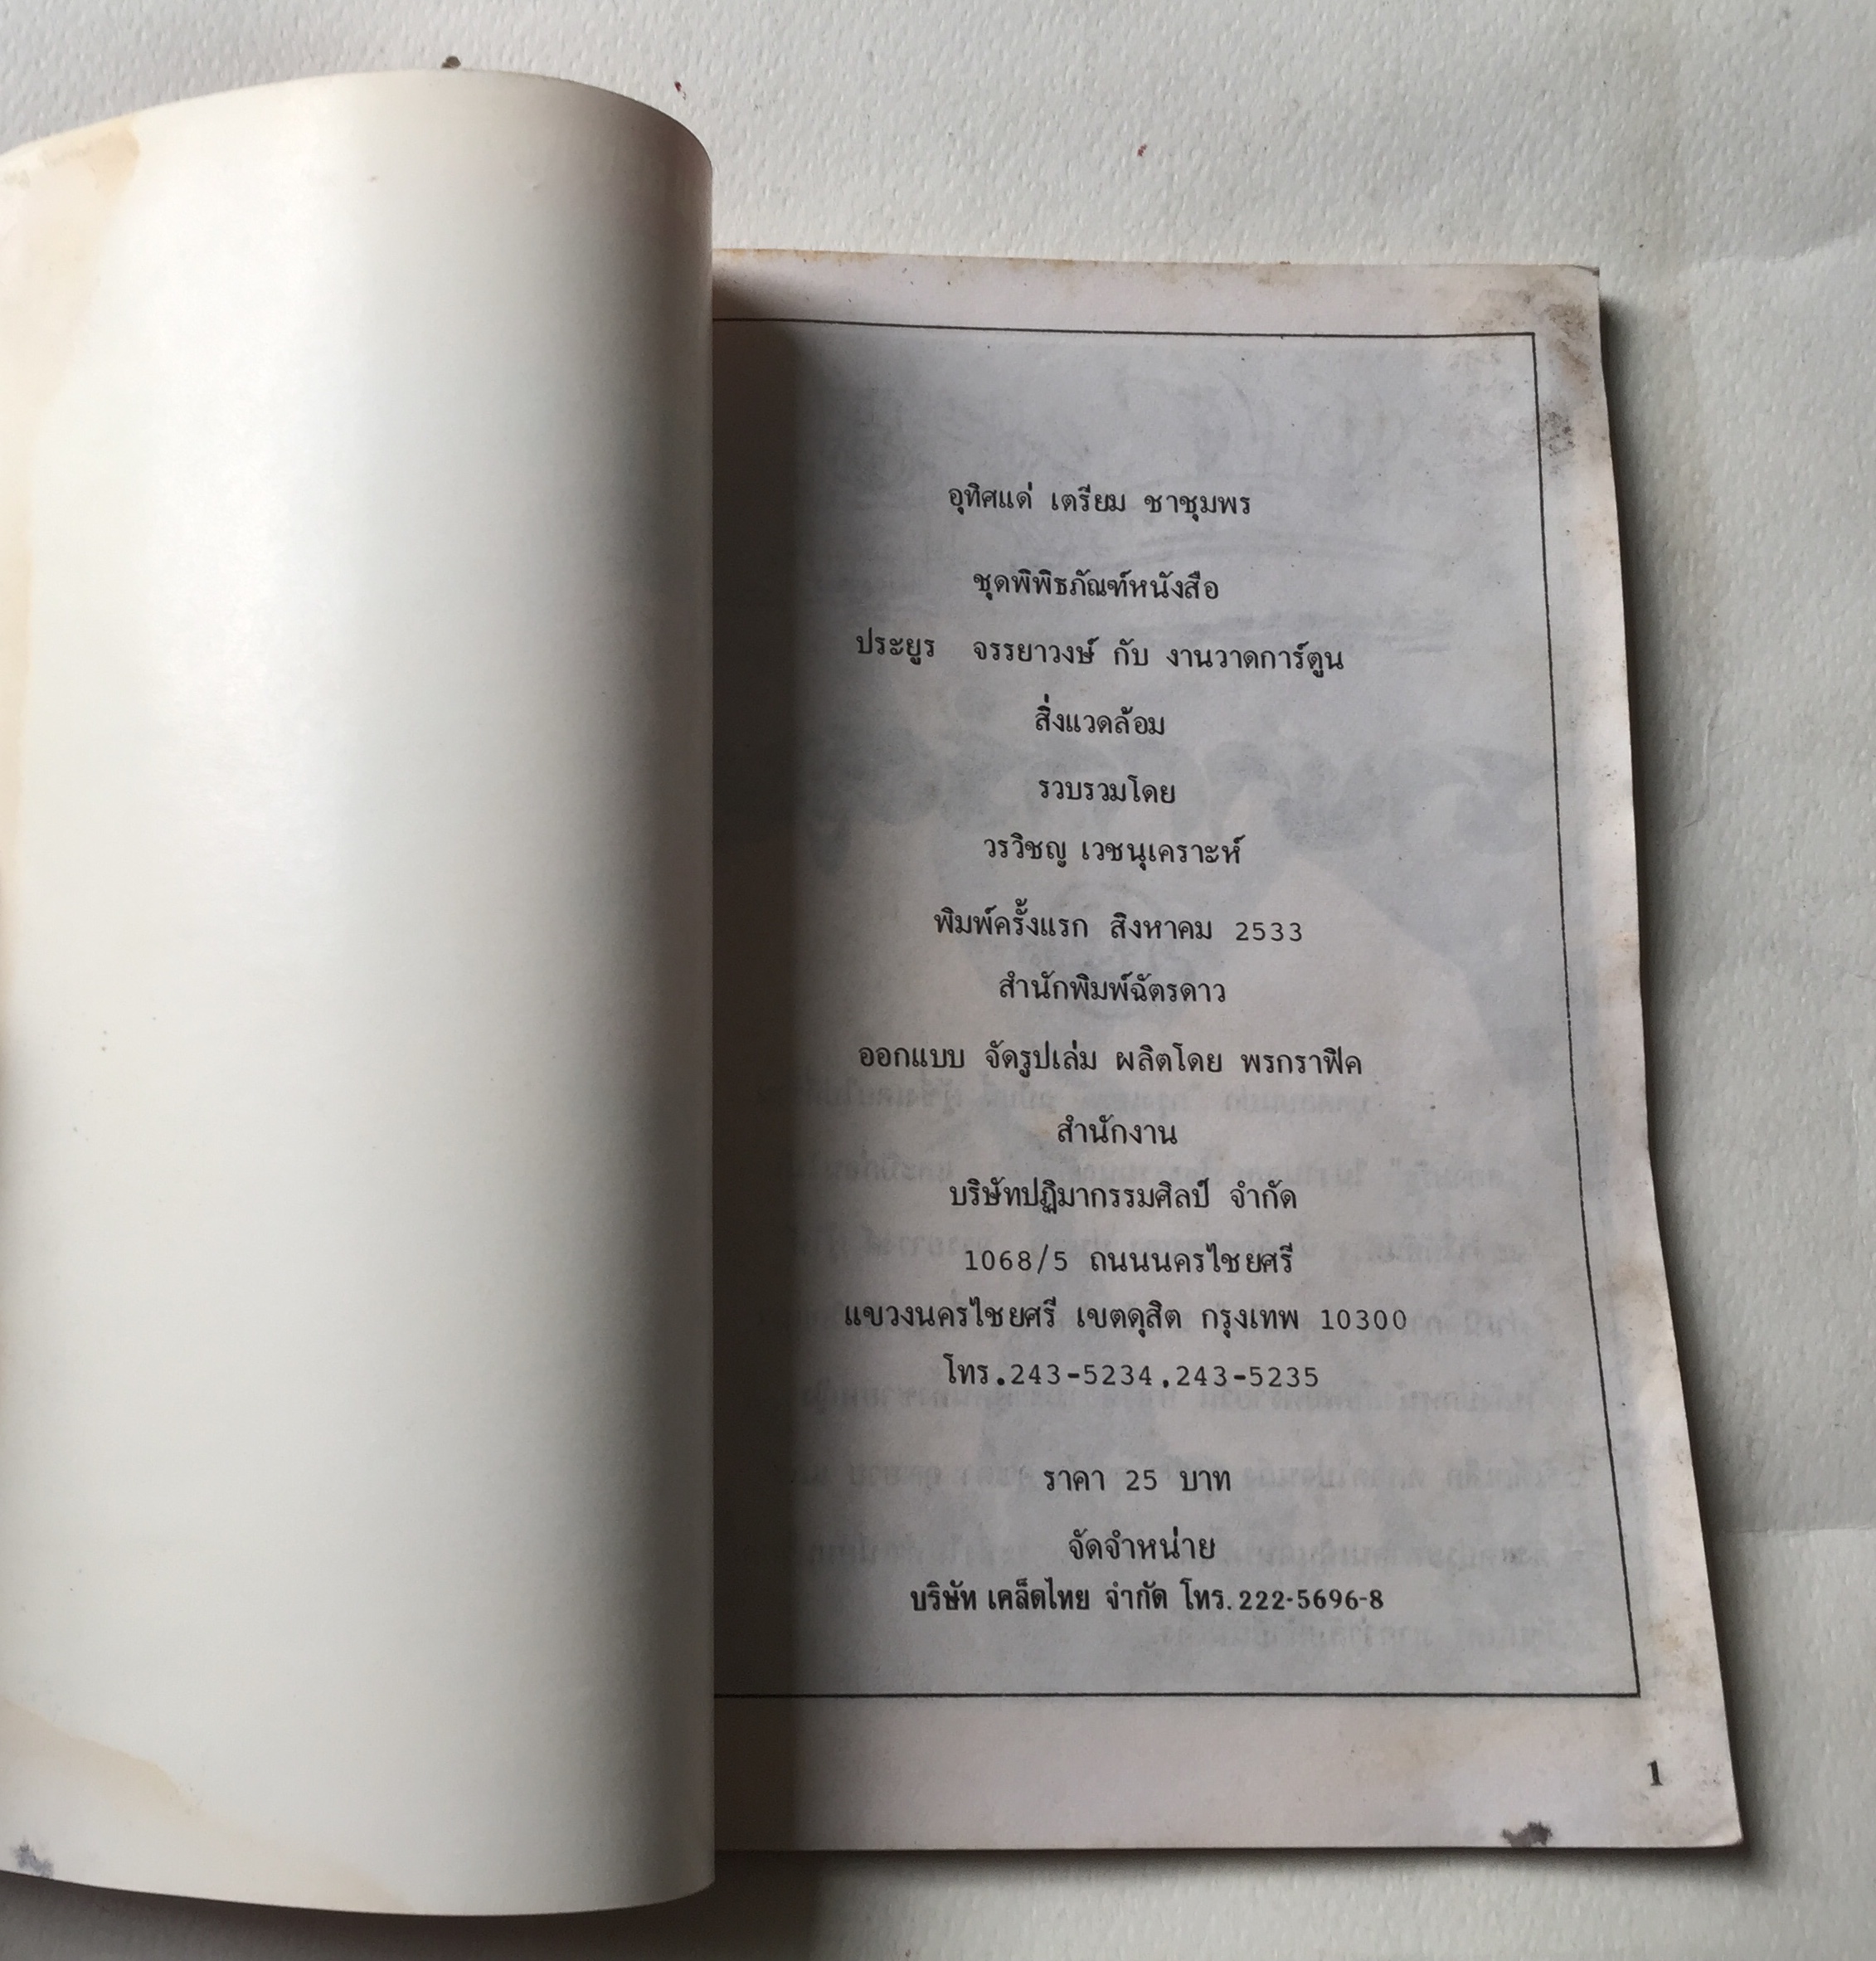 อุทิศแด่ เตรียม ชาชุมพร
ชุดพิพิธภัณฑ์หนังสือ
ประยูร จรรยาวงษ์ กับ งานวาดการ์ตูน
สิ่งแวดล้อม
รวบรวมโดย
วรวิชญ เวชนุเคราะห์
พิมพ์ครั้งแรก สิงหาคม 2533
สำนักพิมพ์ฉัตรดาว
ออกแบบ จัดรูปเล่ม ผลิตโดย พรกราฟิค
สำนักงาน
บริษัทปฏิมากรรมศิลป์ จำกัด
1068/5 ถนนนครไชยศรี
แขวงนครไชยศรี เขตดุสิต กรุงเทพ 10300
โทร.243-5234,243-5235
ราคา 25 บาท
จัดจำหน่าย
บริษัท เคล็ดไทย จำกัด โทร. 222-5696-8
1